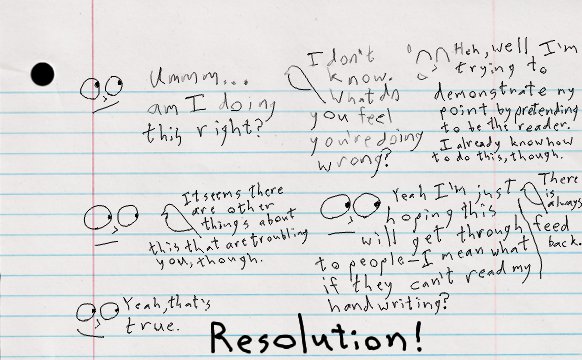 Ummm...
am I doing
this right?
I don't
know.
What do
you feel
you're doing
wrong?
Heh, well I'm
trying to
demonstrate my
point by pretending
to be the reader.
I already know how
to do this, though.
It seems there
are other
things about
this that are troubling
you, though.
Yeah I'm just
hoping this
will get through
to people—I mean what
if they can't read my
handwriting?
There
is
always
feed
back.
Yeah, that's
true.
Resolution!